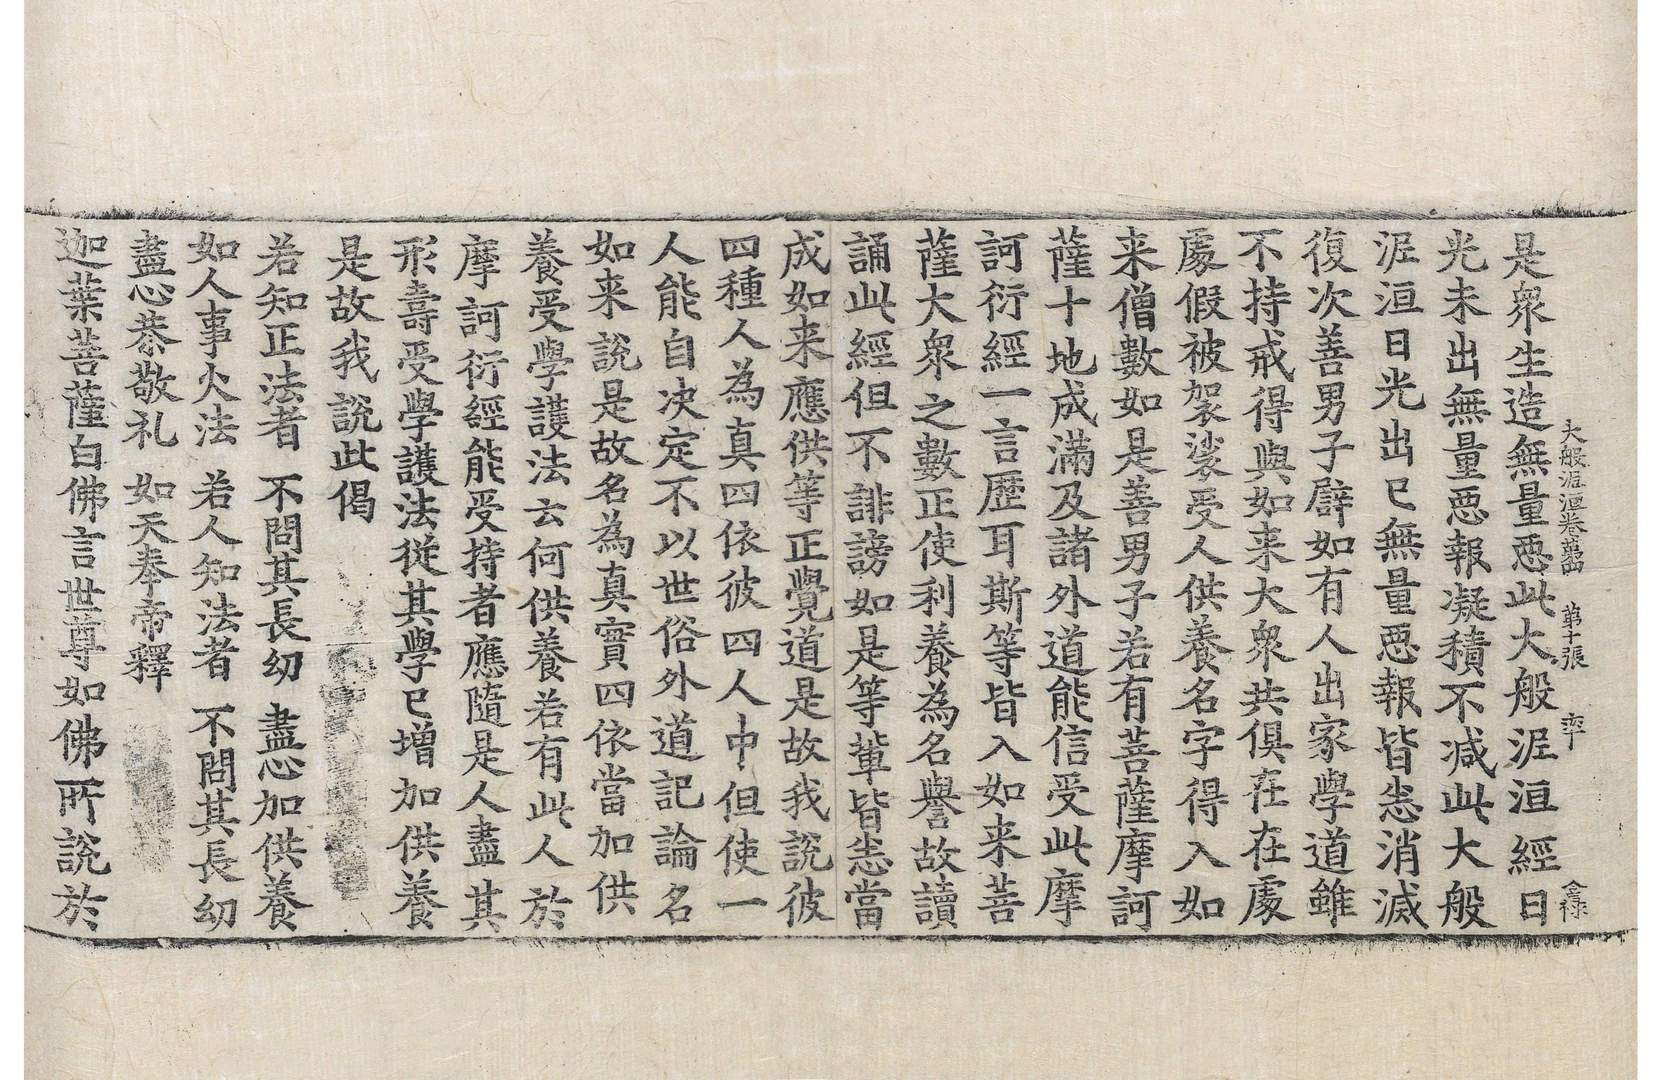 大般泥洹卷第四 第十張 率 金祿
是衆生造無量惡此大般泥洹經日
光未出無量惡報凝積不減此大般
泥洹日光出已無量惡報皆悉消滅
復次善男子辟如有人出家學道雖
不持戒得與如来大衆共俱在在處
處假被袈裟受人供養名字得入如
来僧數如是善男子若有菩薩摩訶
薩十地成滿及諸外道能信受此摩
訶衍經一言歷耳斯等皆入如来菩
薩大衆之數正使利養為名譽故讀
誦此經但不誹謗如是等輩皆悉當
成如来應供等正覺道是故我說彼
四種人為真四依彼四人中但使一
人能自决定不以世俗外道記論名
如来說是故名為真實四依當加供
養受學護法云何供養若有此人於
摩訶衍經能受持者應隨是人盡其
形壽受學護法從其學已增加供養
是故我說此偈
若知正法者 不問其長幼 盡心加供養
如人事火法 若人知法者 不問其長幼
盡心恭敬礼 如天奉帝釋
迦葉菩薩白佛言世尊如佛所說於